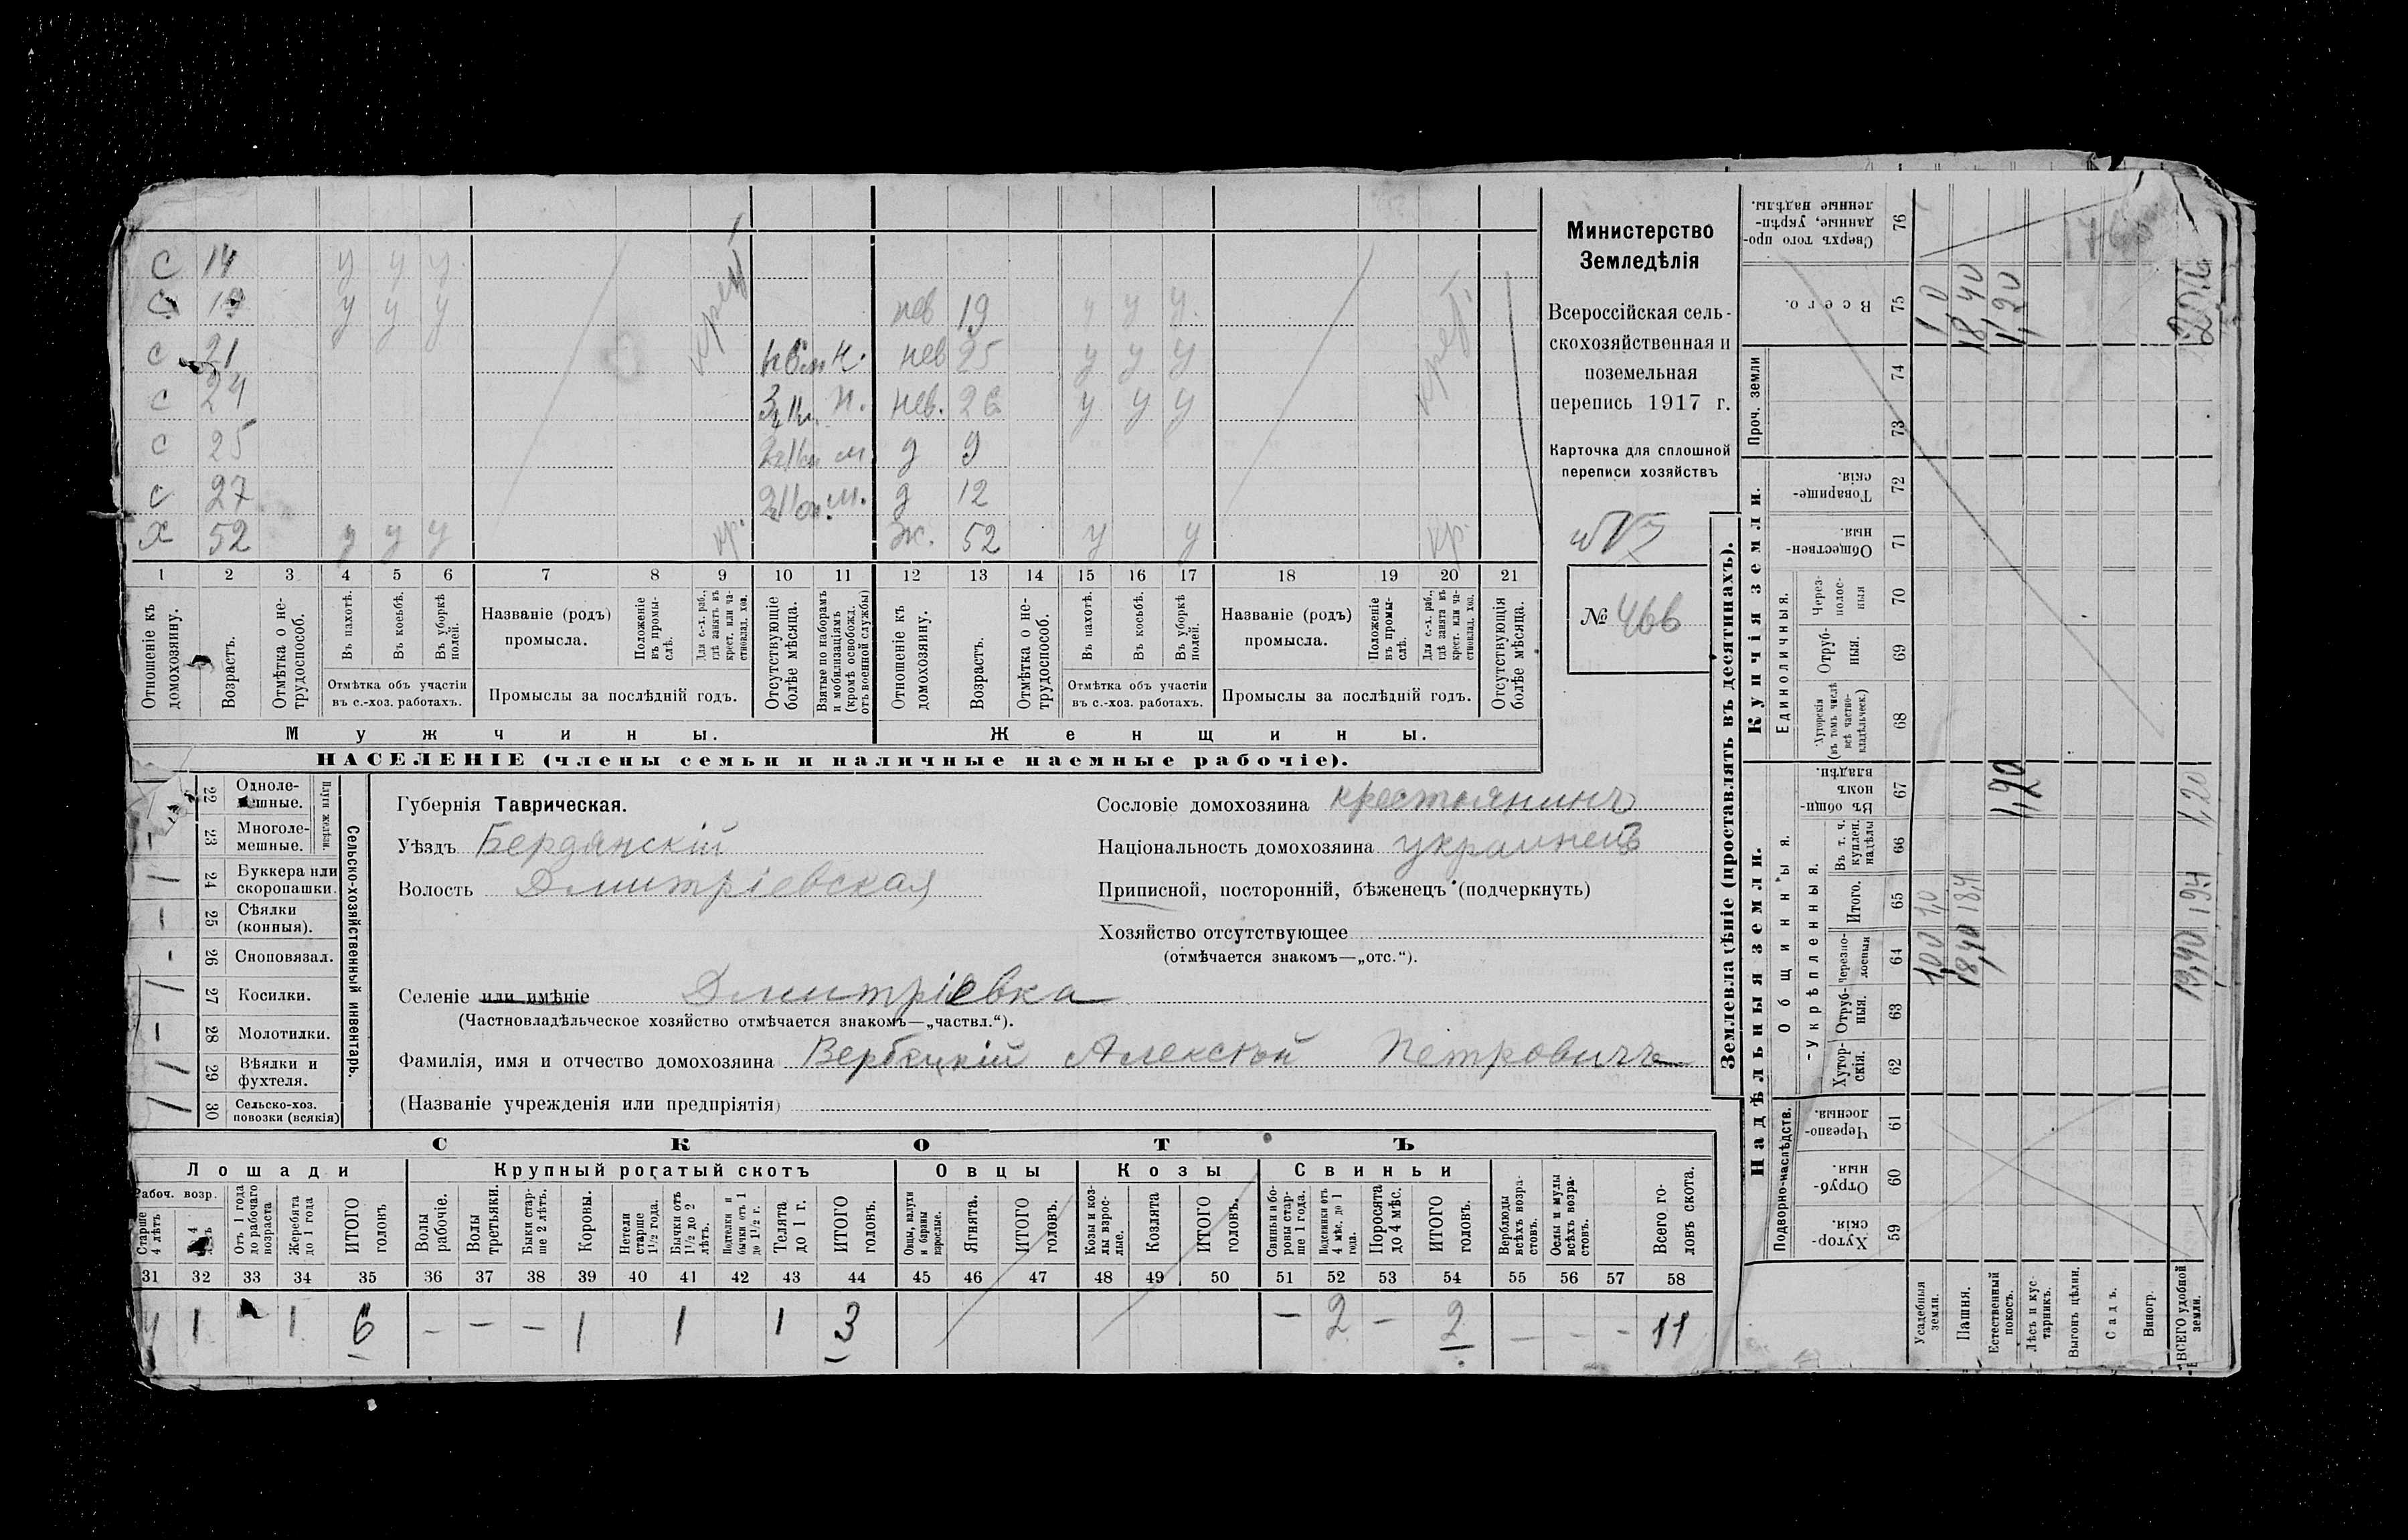 С 14 у у у
С 19 у у у нев 19 у у у
с 21 нев 25 у у у
с 24 н. нев. 26 у у у
с 25 м д 9
с 27 м. д 12
х 52 у у у кр. ж. 52 у у кр.
1 2 3 4 5 6 7 8 9 10 11 12 13 14 15 16 17 18 19 20 21
Отношеніе къ домохозяину.
Возрастъ.
Отмѣтка о не-трудоспособ.
Въ пахотѣ.
Въ косьбѣ.
Въ уборкѣ полей.
Отмѣтка объ участіи
въ с.-хоз. работахъ.
Названіе (родъ)
промысла.
Положеніе въ промы-слѣ.
Для с.-х. раб., гдѣ занятъ въ крест. или ча-стновлад. хоз.
Промыслы за послѣдній годъ.
Отсутствующіе болѣе мѣсяца.
Взятые по наборамъ и мобилизаціямъ (кромѣ освобожд. отъ военной службы)
Отношеніе къ домохозяину.
Возрастъ.
Отмѣтка о не-трудоспособ.
Въ пахотѣ.
Въ косьбѣ.
Въ уборкѣ полей.
Отмѣтка объ участіи
въ с.-хоз. работахъ.
Названіе (родъ)
промысла.
Положеніе въ промы-слѣ.
Для с.-х. раб., гдѣ занятъ въ крест. или ча-стновлад. хоз.
Промыслы за послѣдній годъ.
Отсутствующія болѣе мѣсяца.
Мужчины. Женщины.
НАСЕЛЕНІЕ (члены семьи и наличные наемные рабочіе).
Министерство
Земледѣлія
Всероссійская сель-
скохозяйственная и
поземельная
перепись 1917 г.
Карточка для сплошной
переписи хозяйствъ
№ 466
Сельско-хозяйственный инвентарь.
Плуги желѣзн.
22 Одноле-мешные.
– 23 Многоле-мешные.
1 24 Буккера или скоропашки.
– 25 Сѣялки (конныя).
– 26 Сноповязал.
1 27 Косилки.
– 28 Молотилки.
1 29 Вѣялки и фухтеля.
1 30 Сельско-хоз. повозки (всякія)
Губернія Таврическая.
Уѣздъ Бердянскій
Волость Дмитріевская
Сословіе домохозяина крестьянинъ
Національность домохозяина украинецъ
Приписной, посторонній, бѣженецъ (подчеркнуть)
Хозяйство отсутствующее
(отмѣчается знакомъ—„отс.“).
Селеніе или имѣніе Дмитріевка
(Частновладѣльческое хозяйство отмѣчается знакомъ—„частвл.“).
Фамилія, имя и отчество домохозяина Вербецкій Алексѣй Петровичъ
(Названіе учрежденія или предпріятія)
СКОТЪ
Лошади Крупный рогатый скотъ Овцы Козы Свиньи
Рабоч. возр.
Старше 4 лѣтъ
Отъ 1 года до рабочаго возраста
Жеребята до 1 года
ИТОГО головъ
Волы рабочіе.
Волы третьяки.
Быки стар-ше 2 лѣтъ.
Коровы.
Нетели старше 1½ года.
Бычки отъ 1½ до 2 лѣтъ.
Подтелки и бычки отъ 1 до 1½ г.
Телята до 1 г.
ИТОГО головъ.
Овцы, валухи и бараны взрослые.
Ягнята.
ИТОГО головъ.
Козы и коз-лы взрос-лые.
Козлята
ИТОГО головъ.
Свиньи и бо-ровы стар-ше 1 года.
Подсвинки отъ 4 мѣс. до 1 года.
Поросята до 4 мѣс.
ИТОГО головъ.
Верблюды всѣхъ возра-стовъ.
Ослы и мулы всѣхъ возра-стовъ.
Всего го-ловъ скота.
31 32 33 34 35 36 37 38 39 40 41 42 43 44 45 46 47 48 49 50 51 52 53 54 55 56 57 58
4 1 1 6 – – – 1 1 1 3 – 2 – 2 – – – 11
Землевладѣніе (проставлять въ десятинахъ).
Надѣльныя земли. Купчія земли. Проч. земли
Подворно-наслѣдств. Общинныя. Единоличныя.
Укрѣпленныя.
Хутор-скія. 59
Отруб-ныя. 60
Черезпо-лосныя. 61
Хутор-скія. 62
Отруб-ныя. 63
Черезпо-лосныя 64
Итого. 65
Въ т. ч. куплен. надѣлы 66
Въ общи-номъ владѣн. 67
Хуторскія (въ томъ числѣ всѣ частно-владѣльческ.) 68
Отруб-ныя. 69
Через-полос-ныя 70
Обществен-ныя. 71
Товарище-скія. 72
73
74
Всего. 75
Сверхъ того про-данные, укрѣп-ленные надѣлы. 76
Усадебныя земли. 1,00 1,0 1,0
Пашня. 18,40 18,4 18,40
Естественный покосъ. 1,20 1,20
Лѣсъ и кус-тарникъ.
Выгонъ цѣлин.
Садъ.
Виногр.
ВСЕГО удобной земли. 19,40 19,4 1,20